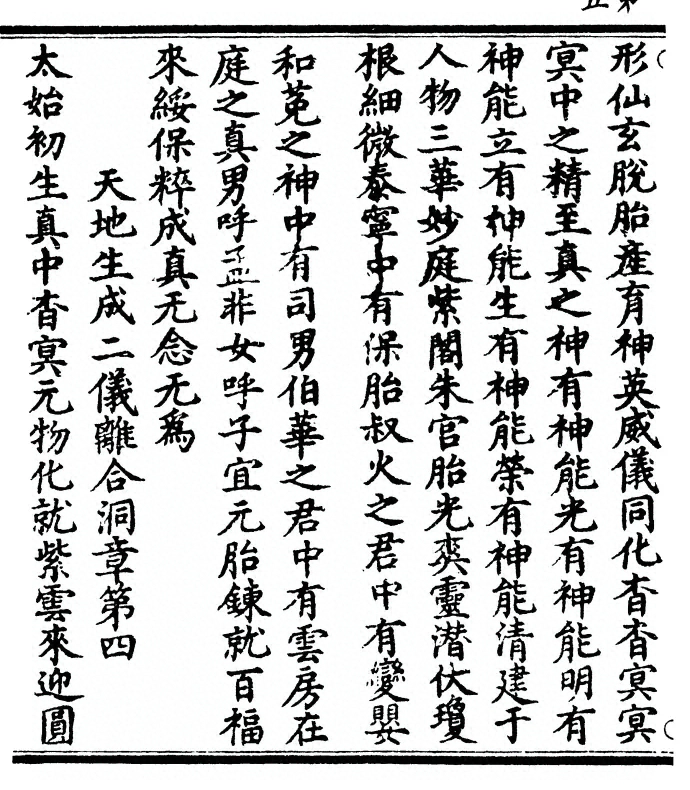 形仙玄脫胎產育神英威儀同化杳杳冥冥
冥中之精至真之神有神能光有神能明有
神能立有神能生有神能榮有神能清建于
人物三華妙庭紫閣朱官胎光奕靈潛伏瓊
根細微泰寧中有保胎叔火之君中有變嬰
和莬之神中有司男伯華之君中有雲房在
庭之真男呼孟非女呼子宜元胎鍊就百福
來綏保粹成真无念无為
天地生成二儀離合洞章第四
太始初生真中杳冥元物化就紫雲來迎圓